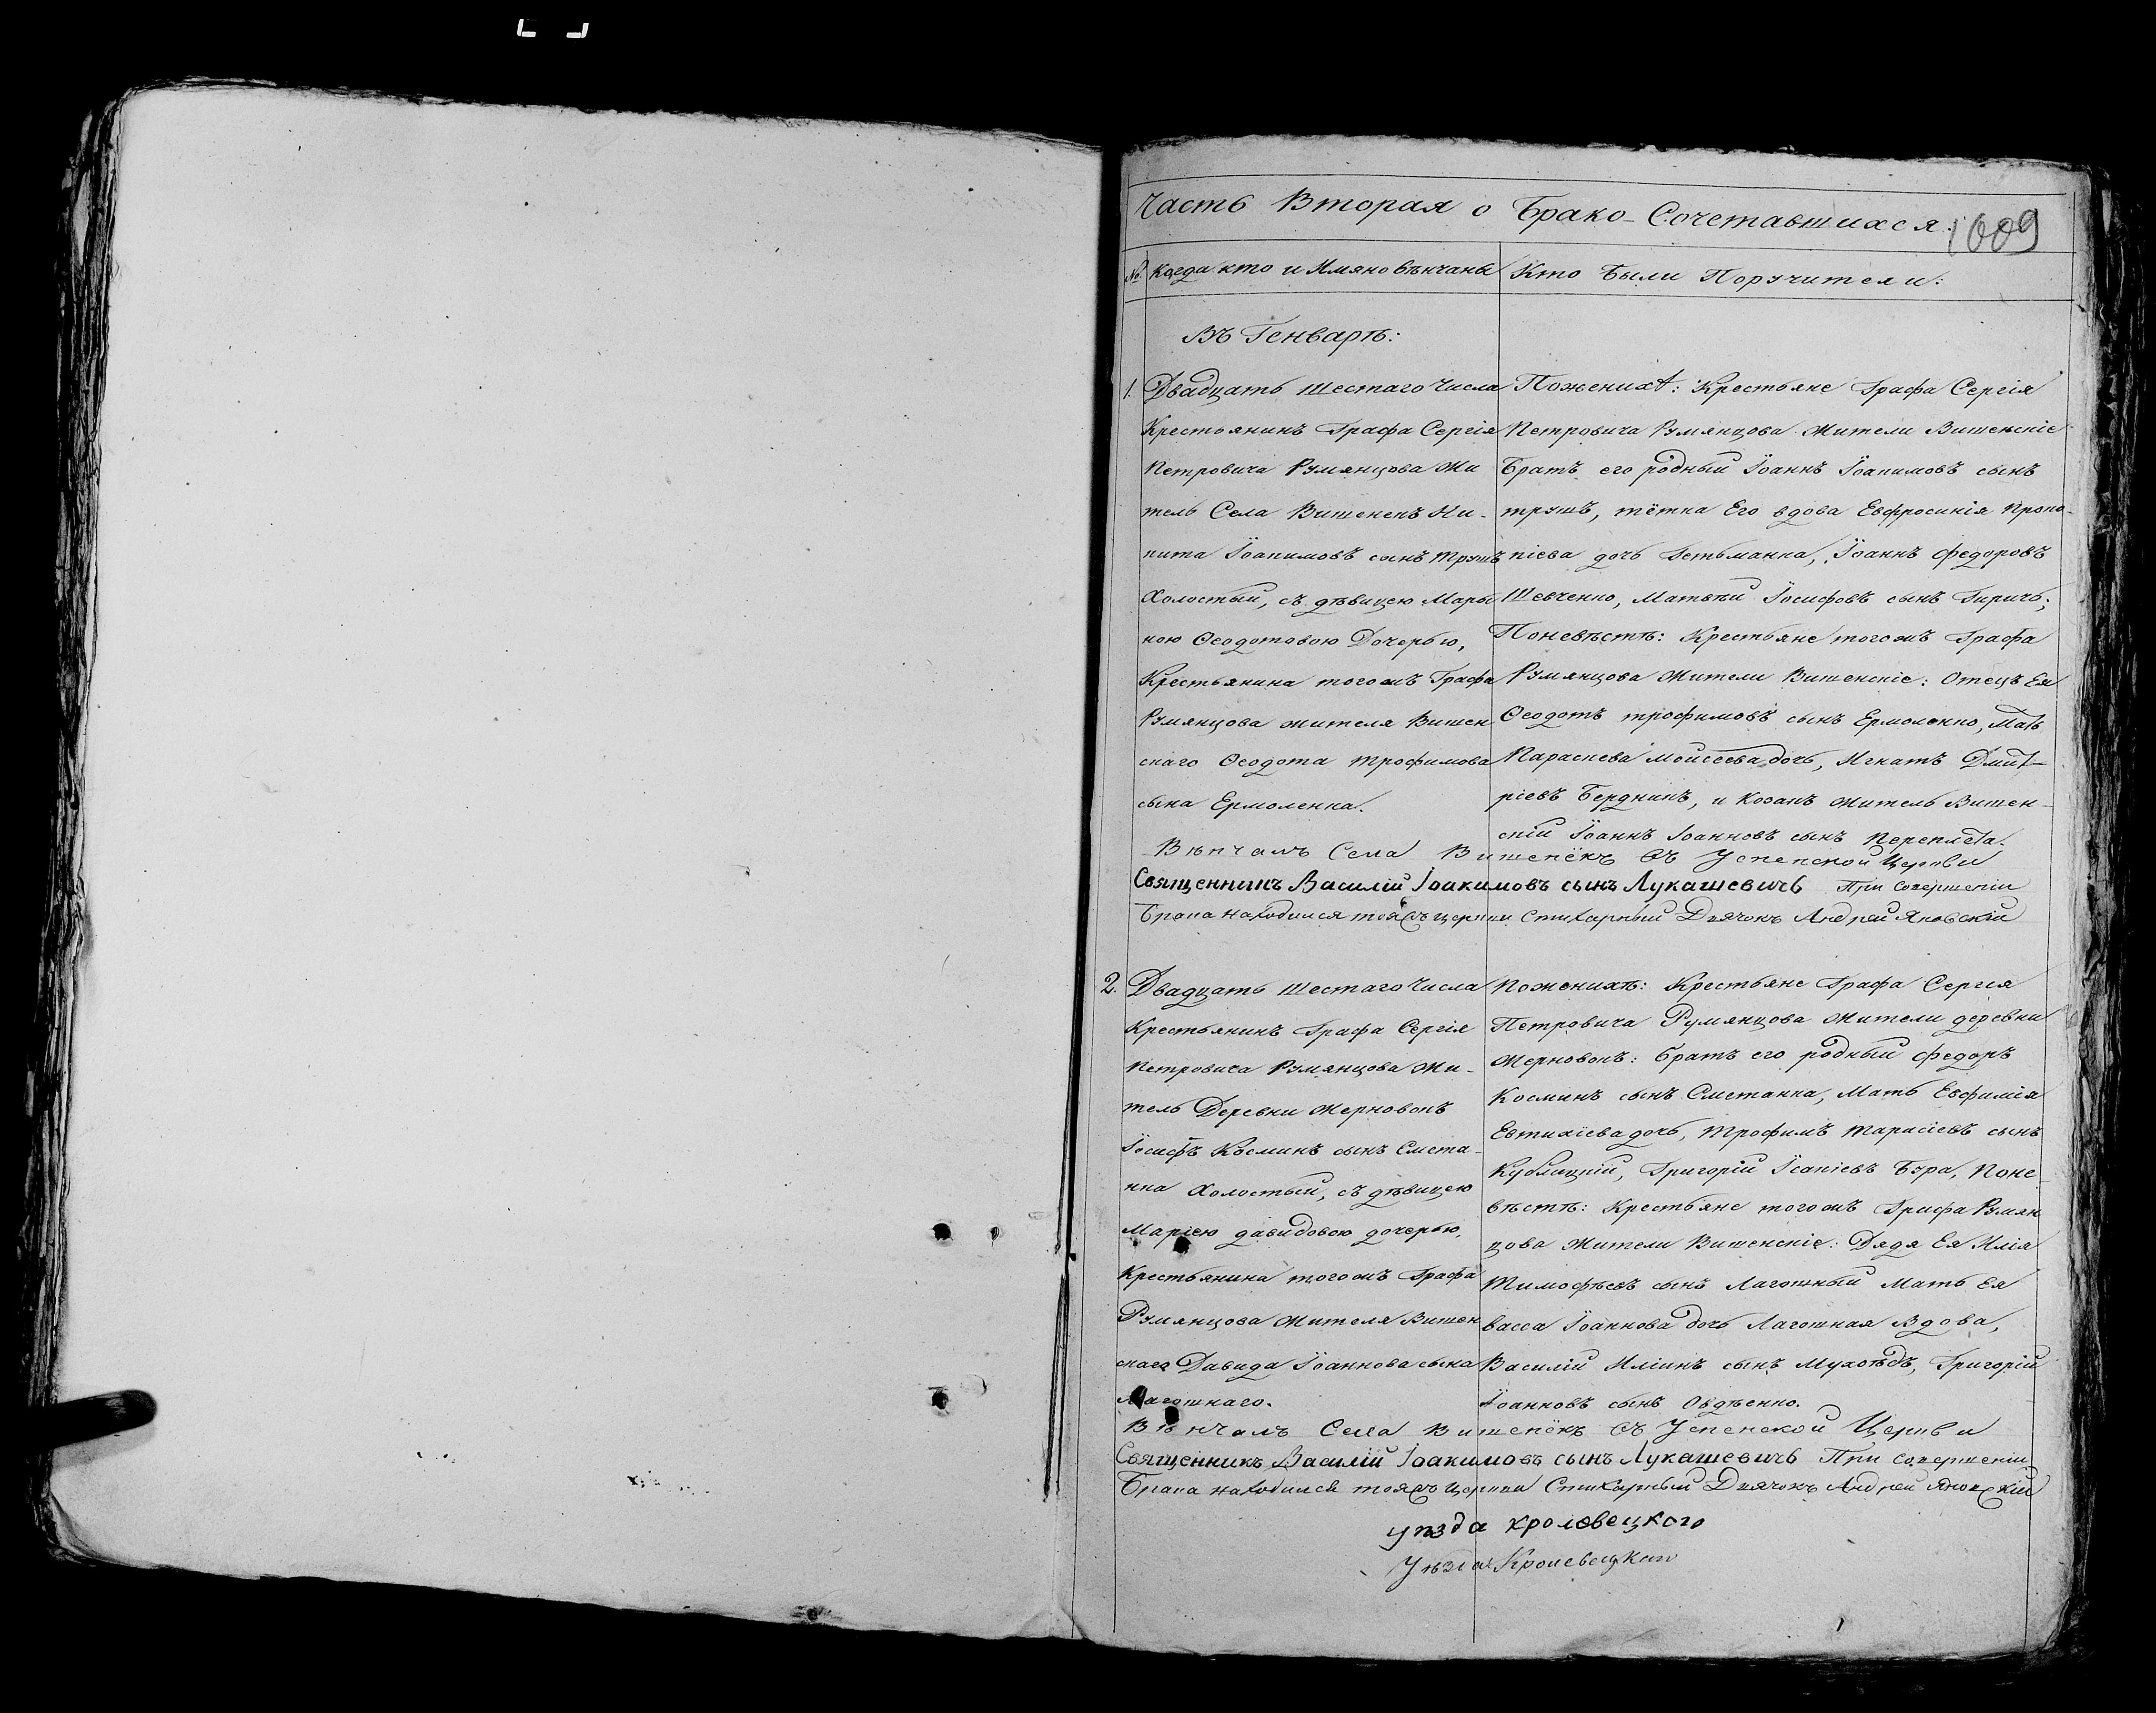 Часть Вторая о Брако-Сочетавшихся.
1009
№ Когда кто и Имяно вѣнчаны
Кто были Поручители:
Въ Генварѣ:
1. Двадцать шестаго числа
Крестьянинъ Графа Сергія
Петровича Румянцова Жи
тель Села Вишенекъ Ни-
кита Іоакимовъ сынъ Трушъ
Холостый, съ дѣвицею Марь
ною Ѳеодотовою Дочерью,
Крестьянина тогожъ Графа
Румянцова жителя Вишен
скаго Ѳеодота Трофимова
сына Ермоленка.
Поженихѣ: Крестьяне Графа Сергія
Петровича Румянцова Жители Вишенскіе
Братъ его родный Іоаннъ Іоакимовъ сынъ
трушъ, тётка Его вдова Евфросинія Проко-
піева дочь Гетьманка, Іоаннъ Федоровъ
Шевченко, Матвѣй Іосифовъ сынъ Гиричъ;
Поневѣстѣ: Крестьяне тогожъ Графа
Румянцова Жители Вишенскіе: Отецъ Ея
Ѳеодотъ трофимовъ сынъ Ермоленко, Мать
Параскева Моисеева дочь, Игнатъ Дмит-
ріевъ Бердникъ, и Козакъ житель Вишен-
скій Іоаннъ Іоанновъ сынъ Переплета.
Вѣнчалъ Села Вишенёкъ съ Успенской Церкви
Священникъ Василій Іоакимовъ сынъ Лукашевичъ При совершеніи
Брака находился тояжъ церкви Стихарный Дьячокъ Андрей Яновскій
2. Двадцать шестаго числа
Крестьянинъ Графа Сергія
Петровича Румянцова Жи-
тель Деревни Жерновокъ
Іосифъ Косминъ сынъ Смета-
нка Холостый, съ дѣвицею
Маріею давидовою дочерью,
Крестьянина тогожъ Графа
Румянцова Жителя Вишен
скаго Давида Іоаннова сына
Лагошнаго.
Поженихѣ: Крестьяне Графа Сергія
Петровича Румянцова Жители деревни
Жерновокъ: братъ его родный федоръ
Косминъ сынъ Сметанка, Мать Евфимія
Евтихіева дочь, Трофимъ Тарасіевъ сынъ
Кублицкій, Григорій Ісакіевъ Бура, Поне-
вѣстѣ: Крестьяне тогожъ Графа Румян
цова Жители Вишенскіе: Дядя Ея Илія
Тимофѣевъ сынъ Лагошный Мать Ея
васса Іоаннова дочь Лагошная Вдова,
Василій Иліинъ сынъ Мухоѣдъ, Григорій
Іоанновъ сынъ Овдѣенко.
Вѣнчалъ Села Вишенёкъ съ Успенской Церкви
Священникъ Василій Іоакимовъ сынъ Лукашевичъ При совершеніи
Брака находился тояжъ церкви Стихарный Дьячокъ Андрей Яновскій
уѣзда кролевецкого
Уѣзда Кролевецкаго